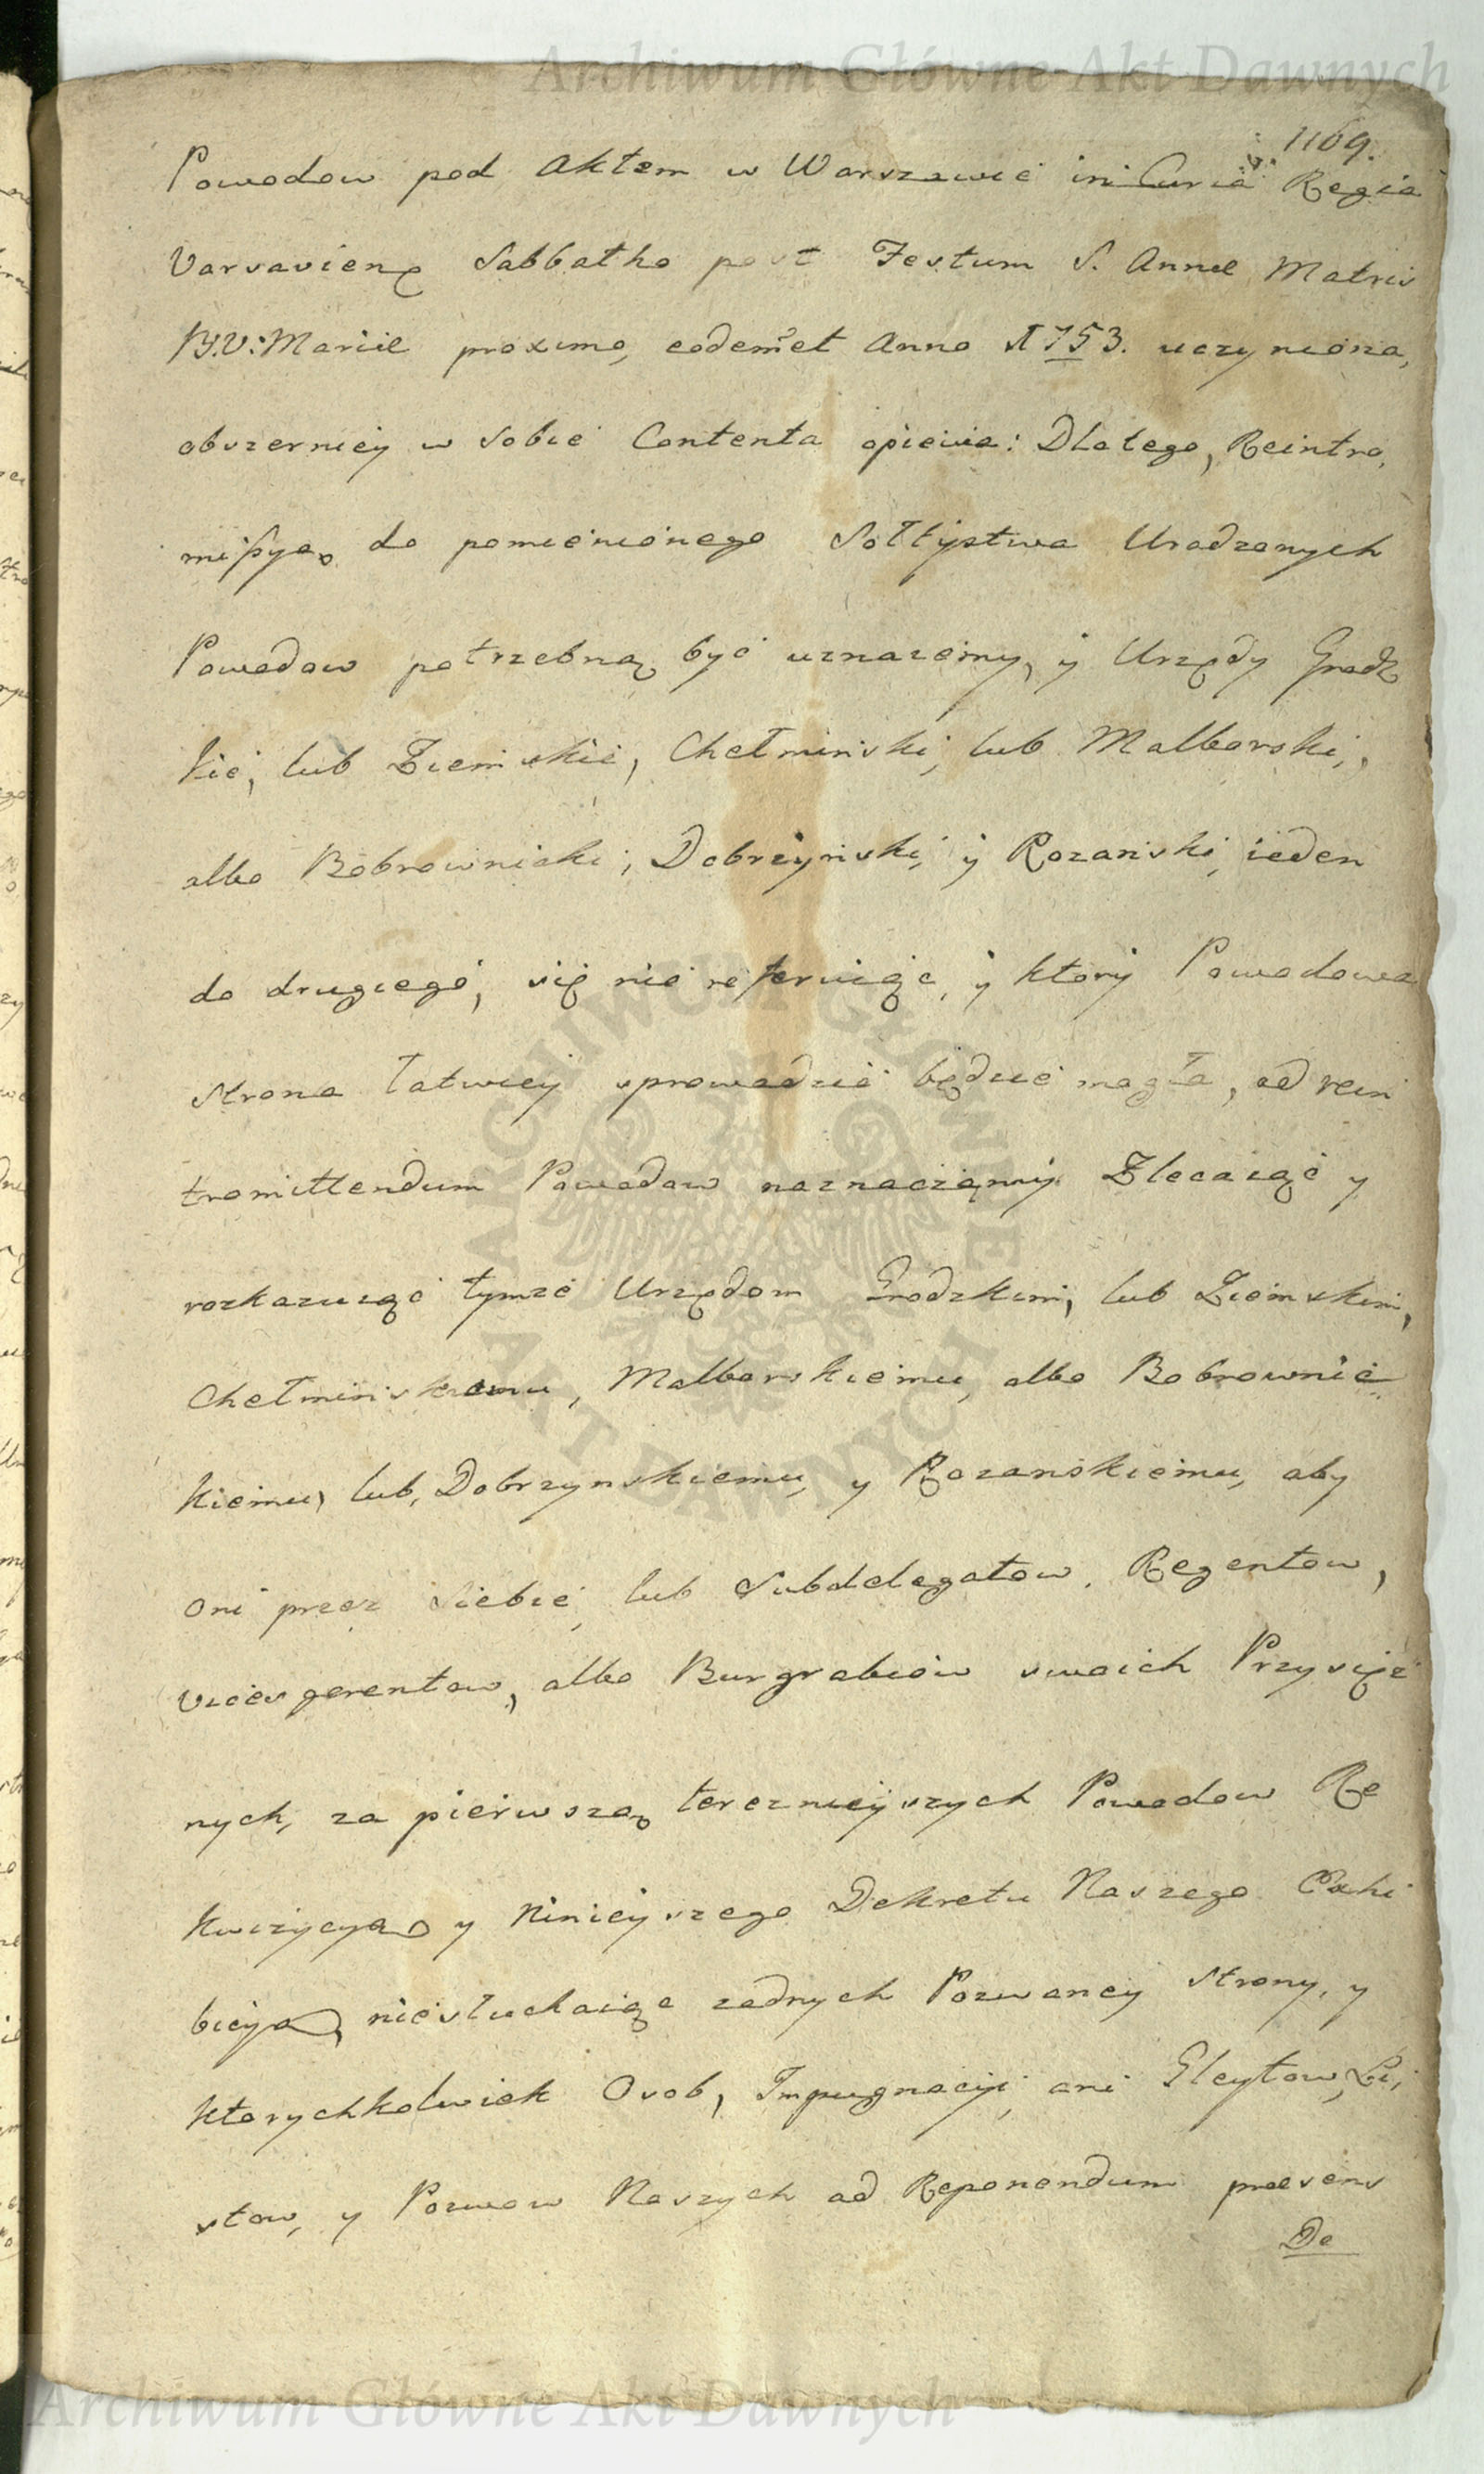 Archiwum Główne Akt Dawnych
1109.
Powodow pod Aktem w Warszawie in Curia Regia
Varsavienę Sabbatho post Festum S. Annæ Matris
B.V: Mariæ proximo, eodemet Anno 1753. uczyniona,
obszerniey w sobie Contenta opiewa: Dlatego, Reintro,
mißyą do pomienionego Sołtystwa Urodzonych
Powodow potrzebną być uznaiemy, y Urzędy Grodz
kie, lub Ziemskie, Chełminski, lub Malborski,
albo Bobrownicki, Dobrzynski, y Rozanski, ieden
do drugiego, się nie referuiąc, y ktory Powodowa
strona łatwiey sprowadzić będzie mogła, ad rein
tromittendum Powodow naznaczamy. Zlecaiąc y
rozkazuiąc tymże Urzędom Grodzkim, lub Ziemskim,
Chełminskiemu, Malborskiemu, albo Bobrownic
kiemu, lub, Dobrzynskiemu, y Rozanskiemu, aby
oni przez siebie, lub Subdelegatow, Regentow,
Vicesgerentow, albo Burgrabiow swoich Przysięż
nych, za pierwszą terezneiyszych Powodow Re
kwizycyą y Ninieyszego Dekretu Naszego Exhi
bicyą, niesłuchaiąc żadnych Pozwaney strony, y
ktorychkolwiek Osob, Impugnacyi, ani Gleytow, Li,
stow, y Pozwow Naszych ad Reponendum præsens
De
ARCHIWUM GŁÓWNE
AKT DAWNYCH
Archiwum Główne Akt Dawnych